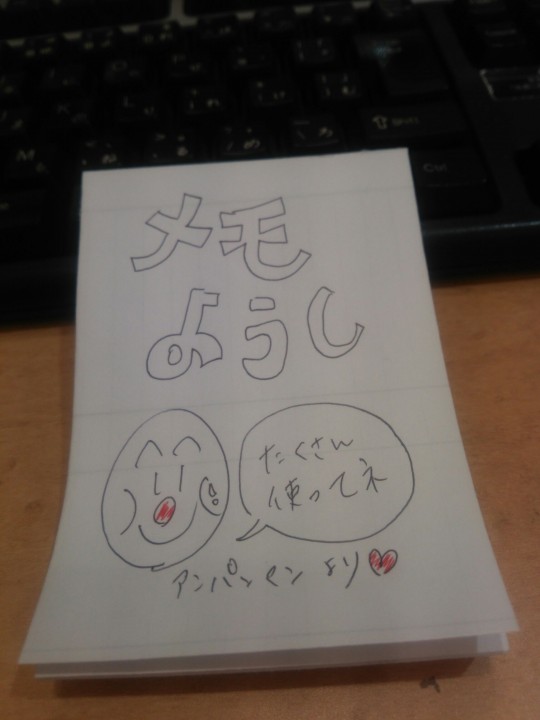 メモ
ようし
たくさん
使ってネ
アンパンマンより
Shift
Ctrl